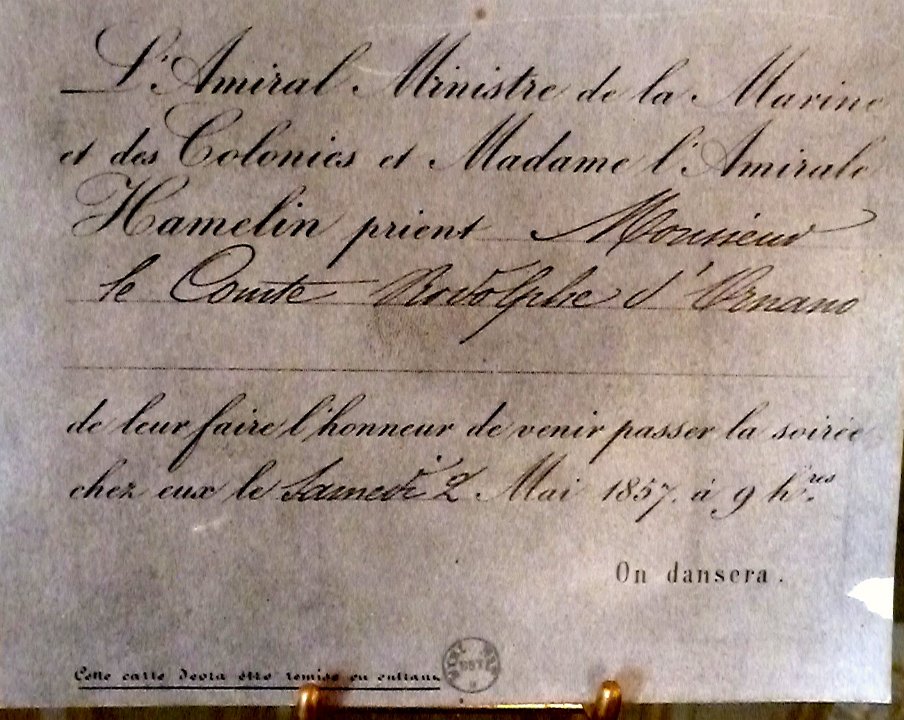 L'Amiral Ministre de la Marine
et des Colonies et Madame l'Amirale
Hamelin prient Monsieur
le Comte Rodolphe d'Ornano
de leur faire l'honneur de venir passer la soirée
chez eux le Samedi 2 Mai 1857. à 9 h.res
On dansera.
Cette carte devra être remise en entrant